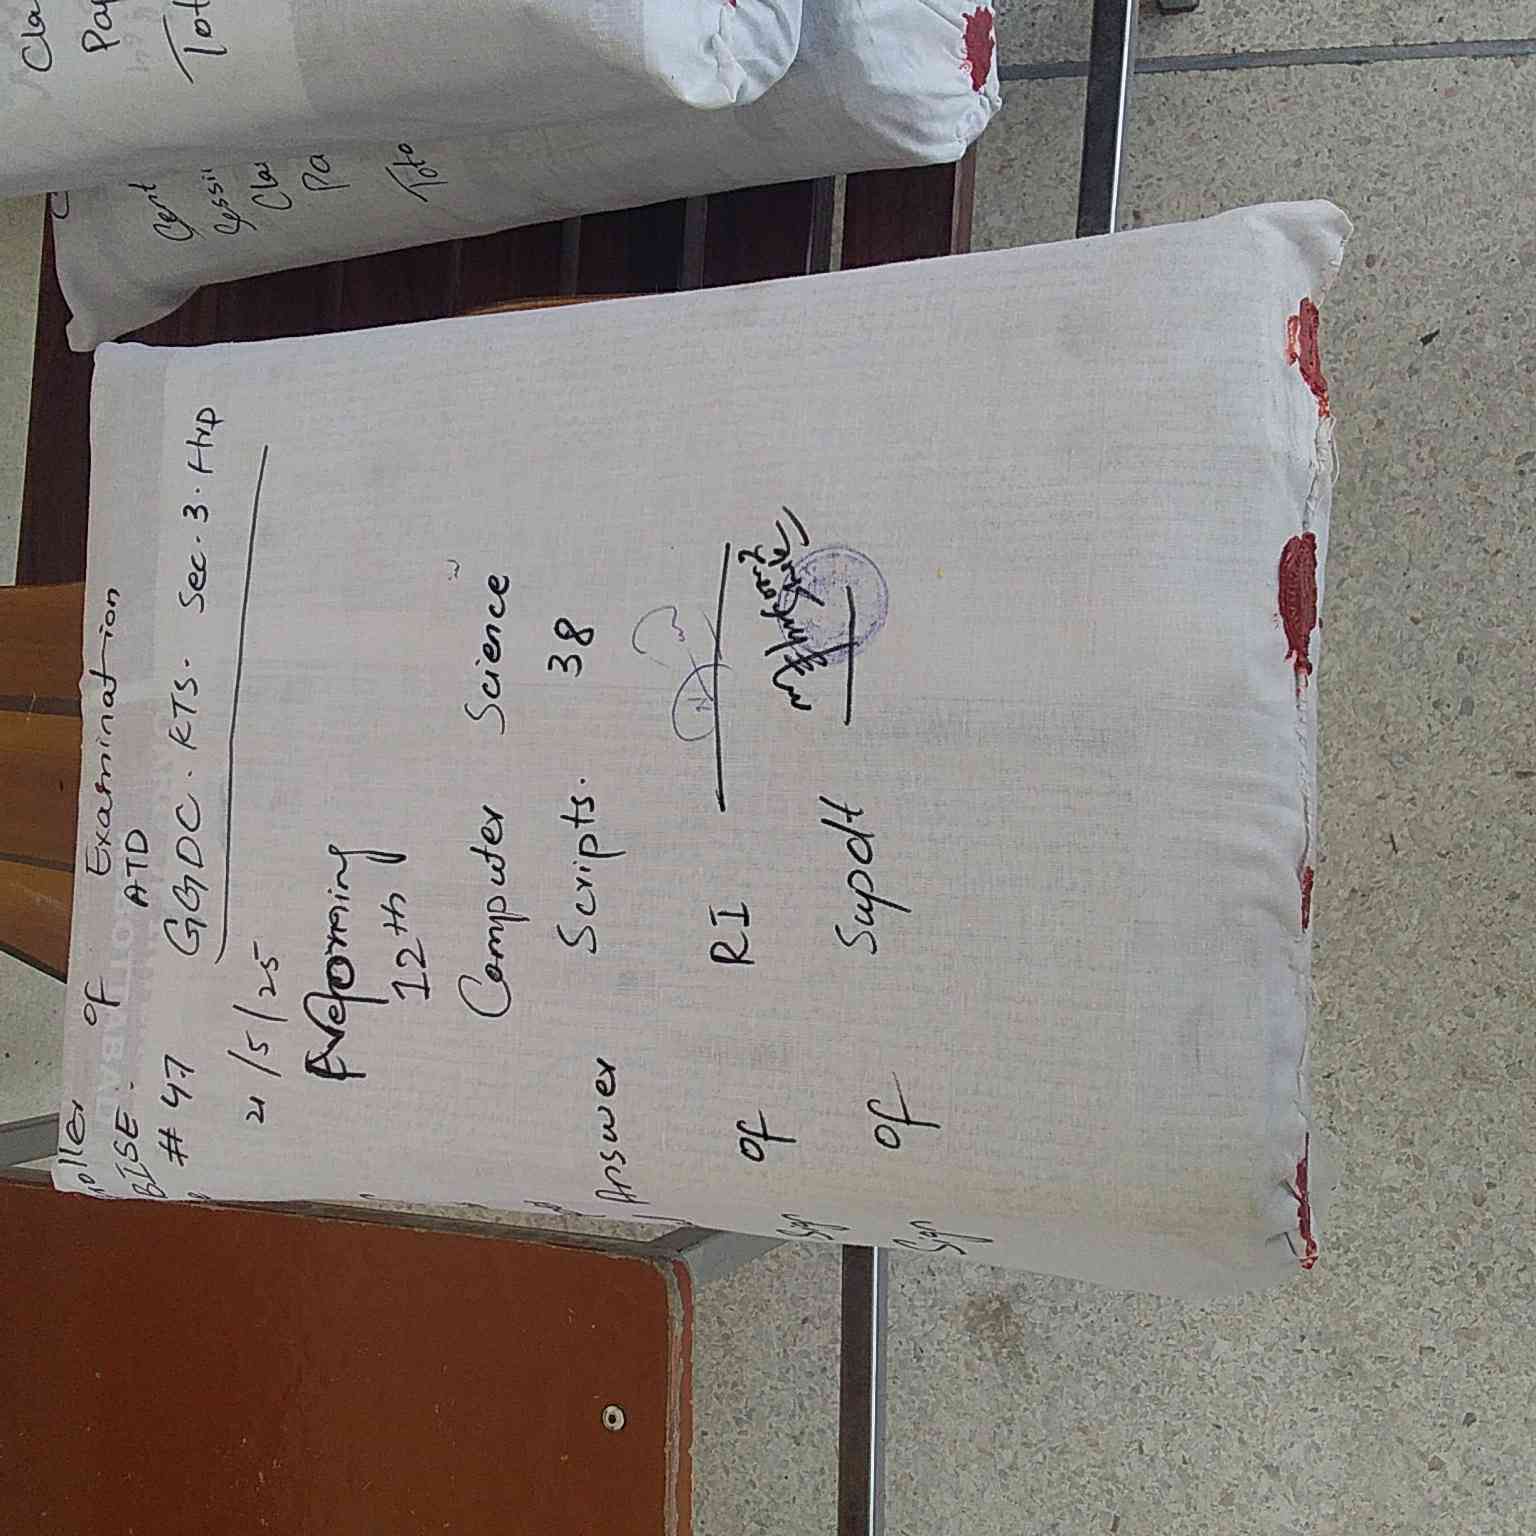 oller of Examination
BISE. ATD
# 47 GGDC. KTS. Sec. 3. Hrp
21/5/25
12th
Computer Science
Answer Scripts. 38
Sgn of RI
Sgn of Supdt
Cla
Pap
Tot
Cent
Sessi
Clas
Pa
Tota